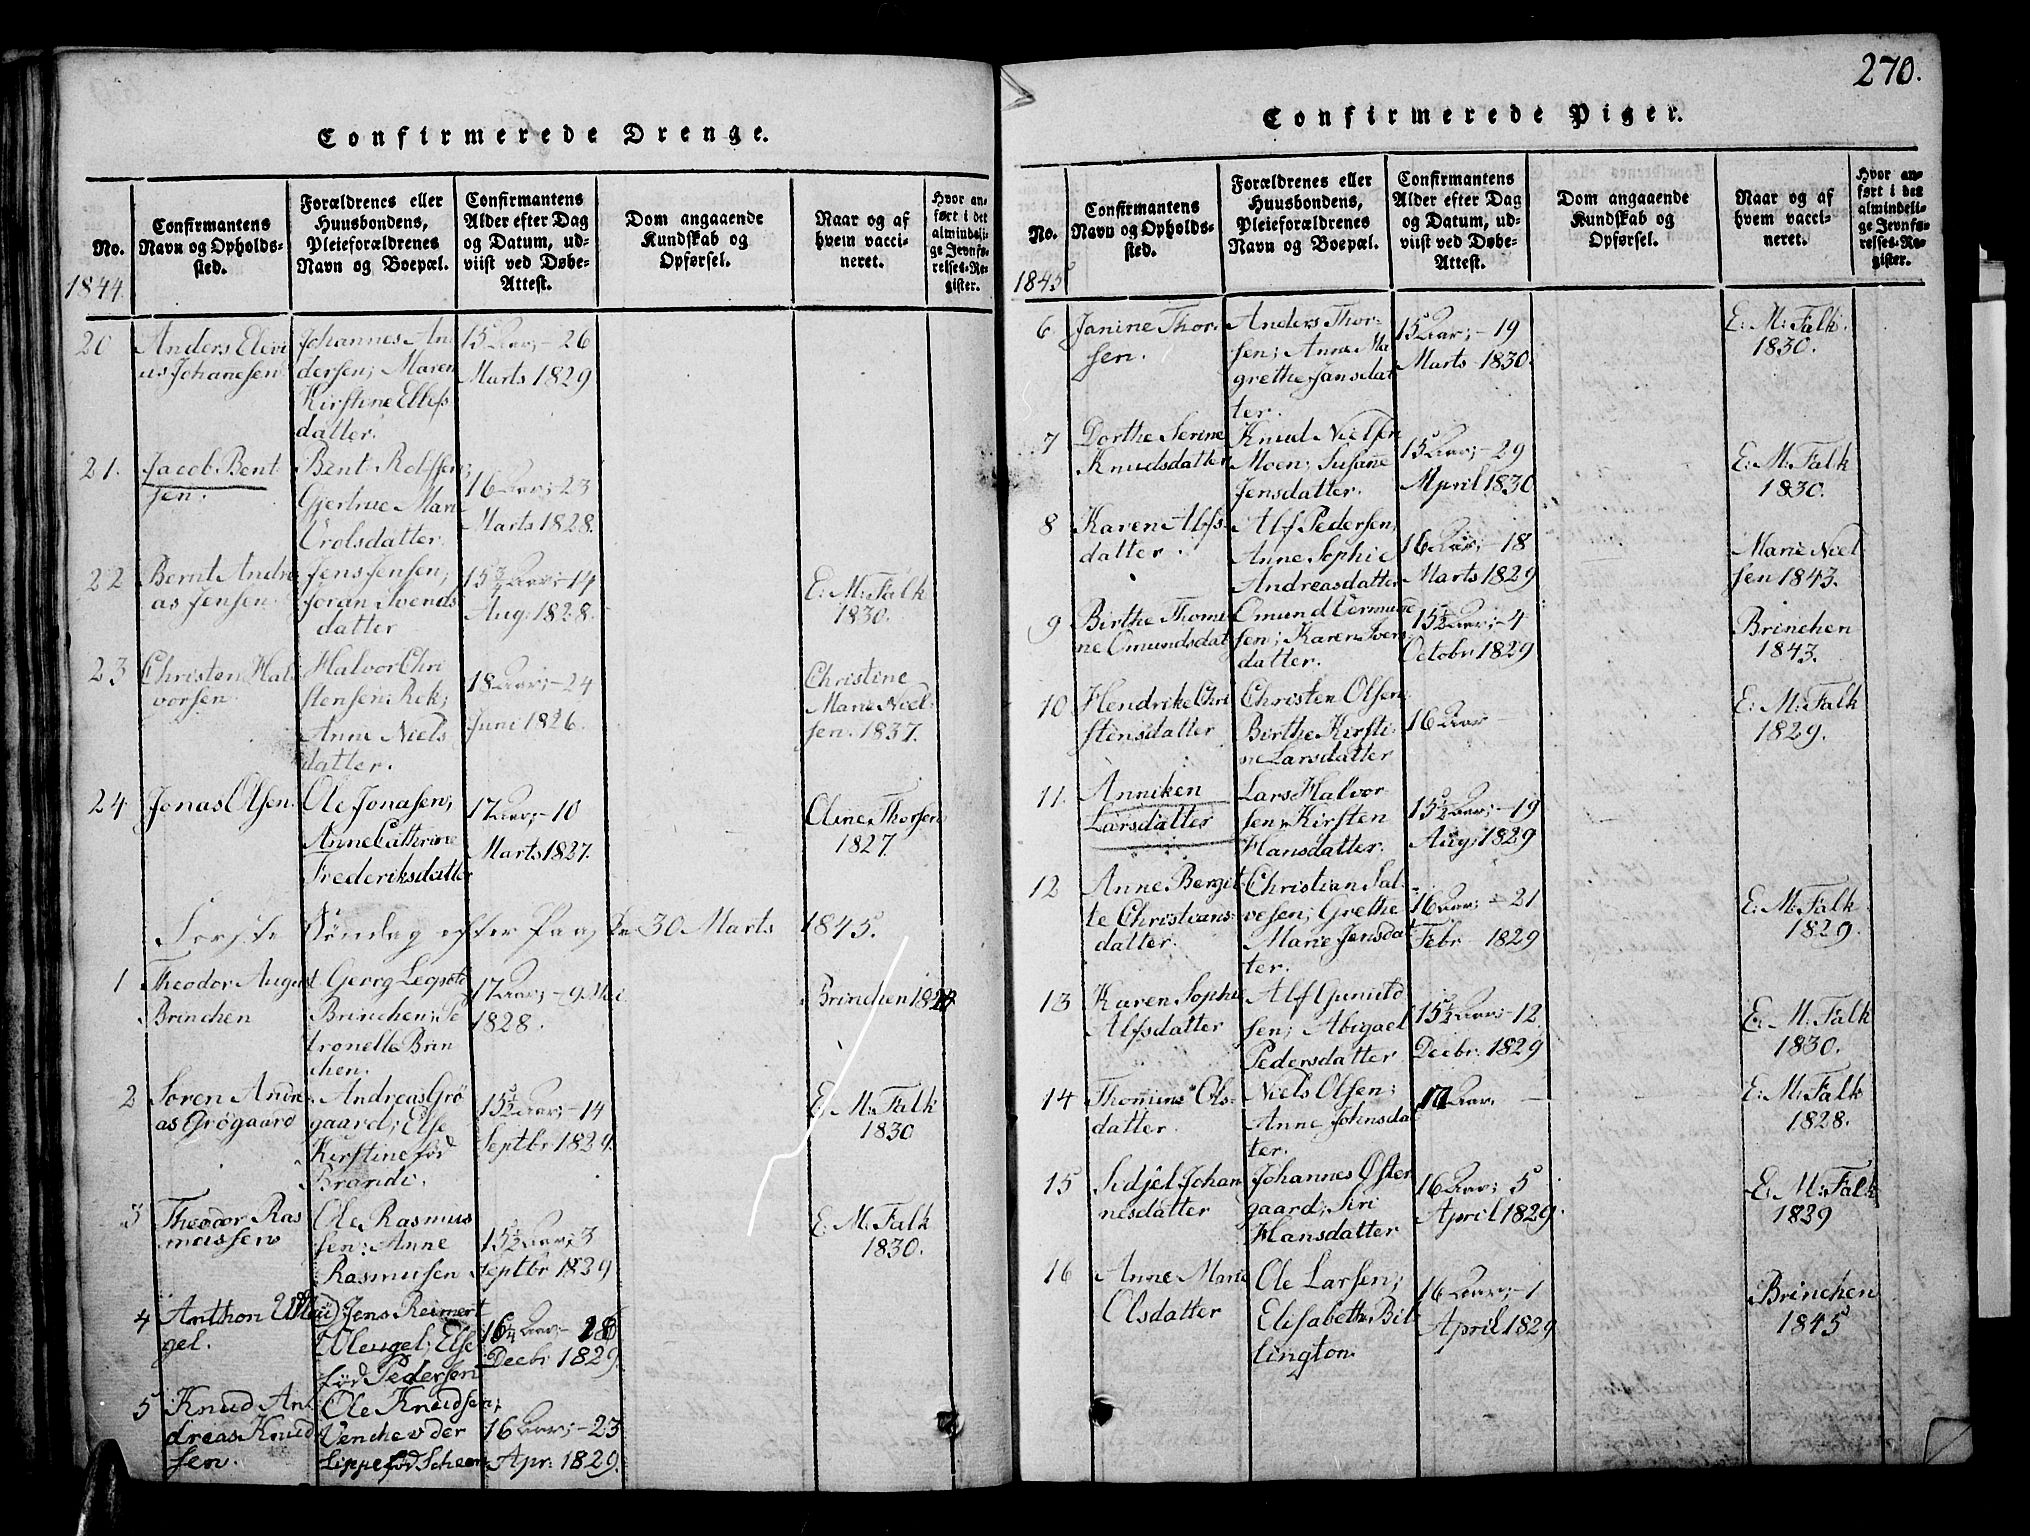 270.
Confirmerede Drenge.
No.
Confirmantens
Navn og Opholds-
sted.
Forældrenes eller
Huusbondens,
Pleieforældrenes
Navn og Boepæl.
Confirmantens
Alder efter Dag
og Datum, ud-
viist ved Døbe-
Attest.
Dom angaaende
Kundskab og
Opførsel.
Naar og af
hvem vacci-
neret.
Hvor an-
ført i det
almindeli-
ge Jevnfø-
relses-Re-
gister.
1844.
20 Anders Elevi
us Johanesen
Johannes An
dersen; Maren
Kirstine Ellefs
datter.
15 Aar; - 26
Marts 1829
21. Jacob Bent
sen.
Bent Rolfsen;
Gjertrue Marie
Trolsdatter
16 Aar; - 23
Marts 1828.
22 Bernt Andre
as Jensen
Jens Jensen;
Joran Svends
datter
15 3/4 Aar; - 14
Aug: 1828.
E: M: Falk
1830.
23 Christen Hal
vorsen
Halvor Chri
stensen Rek;
Anne Niels
datter.
18 Aar; - 24
Juni 1826.
Christine
Marie Noel
sen. 1837.
24 Jonas Olsen.
Ole Jonasen;
Anne Cathrine
Frederiksdatter
17 Aar; - 10
Marts 1827.
Oline Thorsen
1827.
Første Søndag efter Paas De 30 Marts 1845.
1 Theodor August
Brinchen
Georg
Brinchen; Pe
tronelle Brin
chen.
17 Aar; - 9 Mai
1828.
Brinchen
2 Soren Andre
as Grögaard
Andreas Grö
gaard; Else
Kirstine fød
Brandi.
15 1/2 Aar; - 14
Septbr 1829.
E: M: Falk
1830
3 Theodor Ras
mussen
Ole Rasmus
sen; Anne
Rasmusen
15 1/2 Aar; 3
Septbr 1839
E. M: Falk
1830.
4 Anthon
gel.
Jens Reimert
Wleugel; Else
fød Pedersen
16 1/4 Aar; - 28
Decbr 1829.
5 Knud An
dreas Knud
sen.
Ole Knudsen;
Venche v der
Lippe fød Scheen
16 Aar; - 23
Apr: 1829.
Confirmerede Piger.
No.
Confirmantens
Navn og Opholds-
sted.
Forældrenes eller
Huusbondens,
Pleieforældrenes
Navn og Boepæl.
Confirmantens
Alder efter Dag
og Datum, ud-
viist ved Døbe-
Attest.
Dom angaaende
Kundskab og
Opførsel.
Naar og af
hvem vacci-
neret.
Hvor an-
ført i det
almindeli-
ge Jevnfø-
relses-Re-
gister.
1845
6 Janine Thor-
sen.
Anders Thor-
sen; Anne Ma
grethe Jansdat
ter.
15 Aar; - 19
Marts 1830.
E: M: Falk.
1830.
7 Dorthe Serine
Knudsdatter
Knud Nielsen
Moen; Susane
Jensdatter.
15 Aar; - 29
April 1830
E: M: Falk
1830.
8 Karen Alfs-
datter.
Alf Pedersen;
Anne Sophie
Andreasdatter
16 Aar; - 18
Marts 1829
Marie Noel
sen 1843.
9 Birthe Thomi
ne Omundsdat
Omund Vermund
sen; Karen Ivers
datter.
15 1/2 Aar; - 4
Octobr 1829
Brinchen
1843.
10 Hendrike Chri
stensdatter
Christen Olsen
Birthe Kirsti
ne Larsdatter
16 Aar -
E: M: Falk
1829.
11. Anniken
Larsdatter
Lars Halvor
sen; Kirsten
Hansdatter.
15 1/2 Aar; - 19
Aug: 1829
12 Anne Bergit
te Christians-
datter.
Christian Sal-
vesen; Grethe
Marie Jensdat
ter.
16 Aar; - 21
Febr - 1829
E: M: Falk
1829.
13 Karen Sophie
Alfsdatter
Alf Gunuld
sen; Abigael
Pedersdatter
15 1/2 Aar; - 12.
Decbr. 1829
E: M: Falk
1830.
14 Thomine Ols-
datter.
Niels Olsen;
Anne Johnsdat
ter.
17 Aar. -
E: M: Falk
1828.
15 Sidsel Johan
nesdatter
Johannes Øster
gaard; Siri
Hansdatter
16 Aar; 5
April 1829.
E: M: Falk
1839
16 Anne Marie
Olsdatter
Ole Larsen;
Elisabeth Bil
lington.
16 Aar; - 1
April 1829
Brinchen
1845